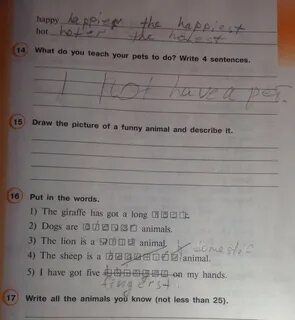 happy happier the happiest
hot hotter the hotest
14 What do you teach your pets to do? Write 4 sentences.
I not have a pet.
15 Draw the picture of a funny animal and describe it.
16 Put in the words.
1) The giraffe has got a long
2) Dogs are animals.
3) The lion is a animal.
4) The sheep is a animal.
5) I have got five on my hands.
fingers
17 Write all the animals you know (not less than 25).